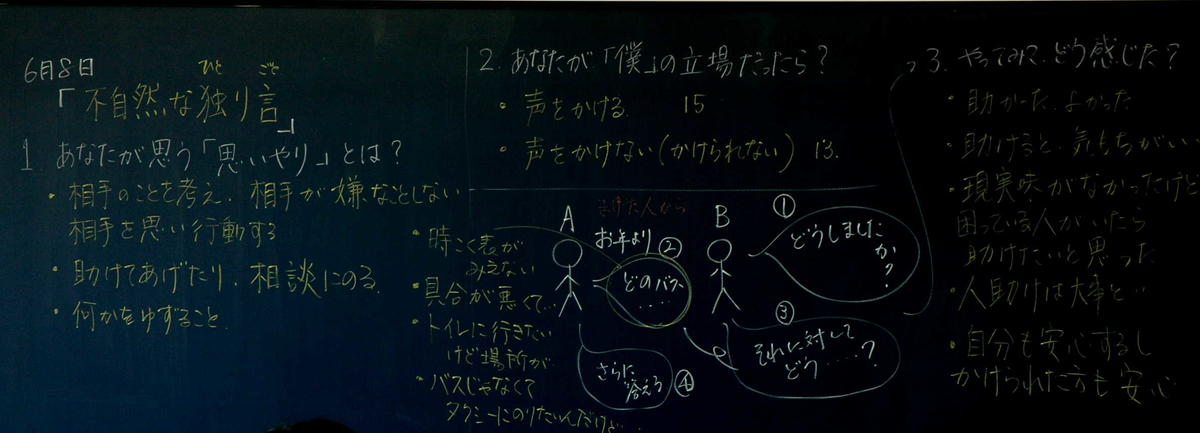 6月8日
ひと ごと
「不自然な独り言」
1 あなたが思う「思いやり」とは？
・相手のことを考え、相手が嫌なことしない
相手を思い行動する
・助けてあげたり、相談にのる
・何かをゆずること。
2. あなたが「僕」の立場だったら？
・声をかける 15
・声をかけない(かけられない) 13.
・時こく表が
みえない
・具合が悪くて…
・トイレに行きたい
けど場所が…
・バスじゃなくて
タクシーにのりたいんだけど…
A
お年より
B
①
どうしました
か？
②
どのバス
.....
③
それに対して
どう……？
さらに
答える
④
3. やってみて、どう感じた？
・助かった、よかった
・助けると、気もちがいい
・現実味がなかったけど
困っている人がいたら
助けたいと思った
・人助けは大事と…
・自分も安心するし
かけられた方も安心